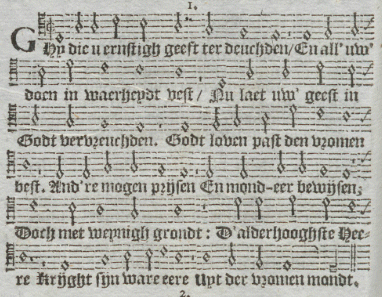 1.
GHy die u ernstigh geeft ter deuchden/ En all' uw'
doen in waerheydt vest/ Nu laet uw' geest in
Godt vervreuchden. Godt loven past den vromen
best. And're mogen prijsen En mond-eer bewijsen;
Doch met weynigh grondt: D'alderhooghste Hee-
re Krijght sijn ware eere Uyt der vromen mondt.
2.